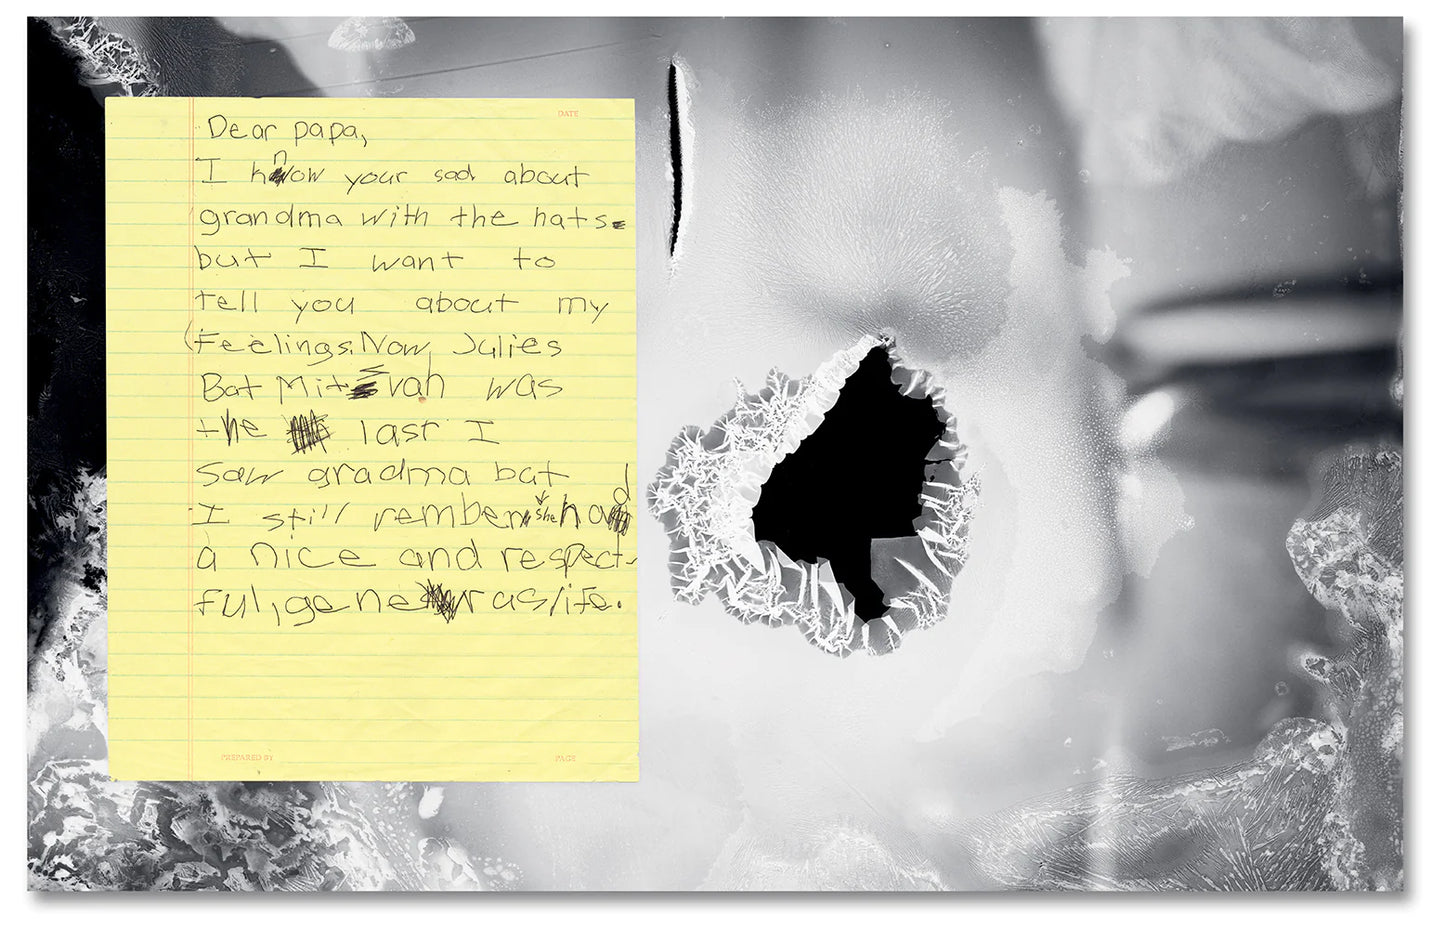 DATE
Dear papa,
I know your sad about
grandma with the hats.
but I want to
tell you about my
Feelings. Now, Julies
Bat Mitsvah was
the last I
saw gradma bat
I still rember she had
a nice and respect-
ful, generaslife.
PREPARED BY
PAGE